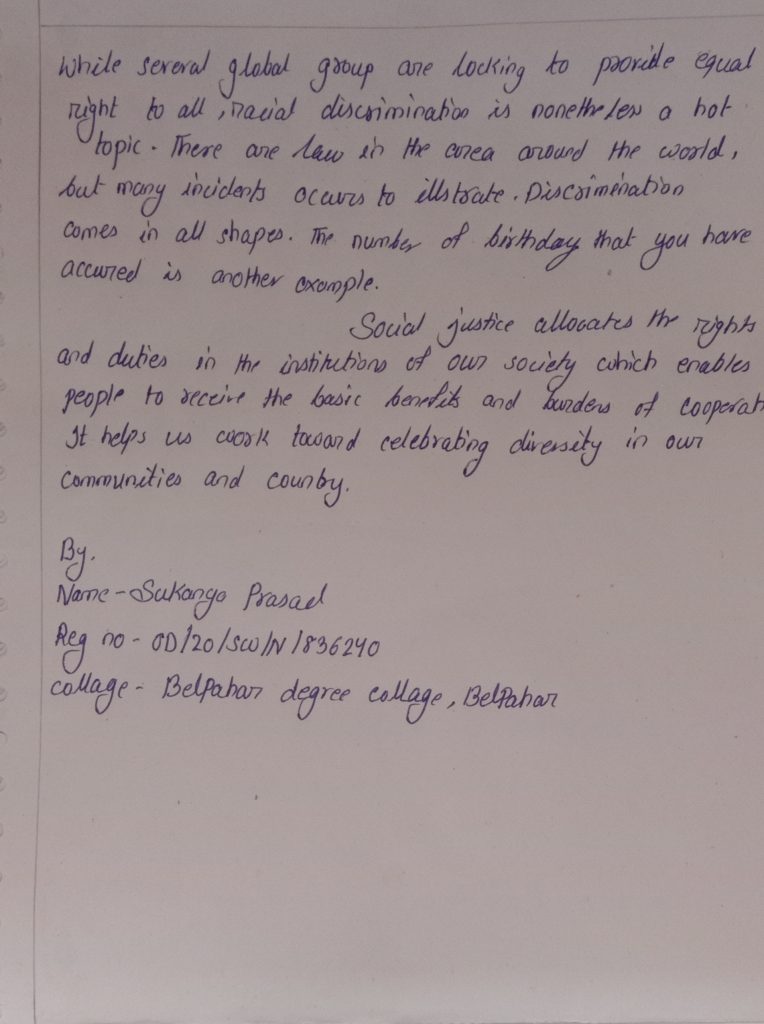 While several global group are locking to provide equal
right to all , racial discrimination is nonetheless a hot
topic. There are law in the area around the world,
but many incidents occurs to illstrate. Discrimination
comes in all shapes. The number of birthday that you have
accured is another example.
Social justice allocates the rights
and duties in the institutions of our society which enables
people to receive the basic benefits and burdens of cooperat
It helps us work toward celebrating diversity in our
communities and counby.
By.
Name - Sukanya Prasad
Reg no - OD/20/SW/N/836240
collage - BelPahar degree collage, BelPahar